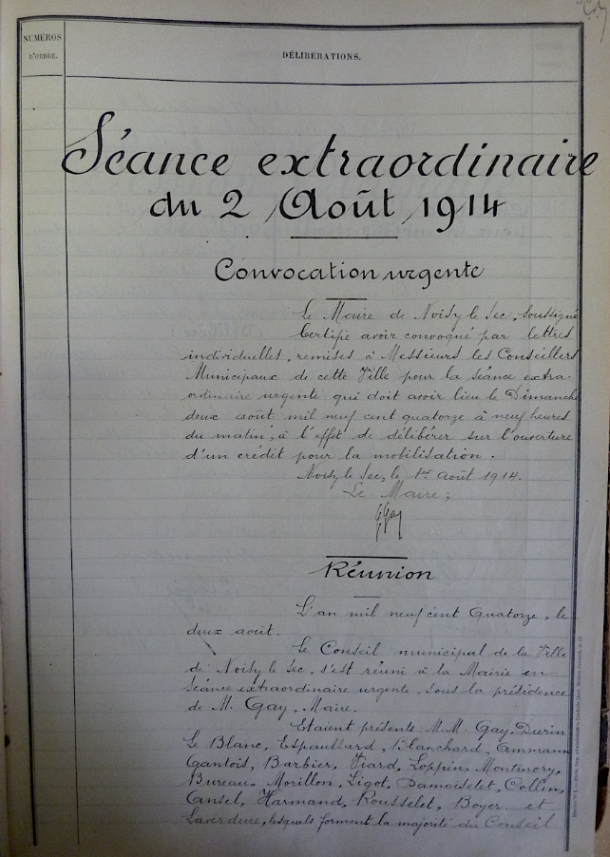 NUMÉROS
D'ORDRE.
DÉLIBÉRATIONS.
Séance extraordinaire
du 2 Août 1914
Convocation urgente
Le Maire de Noisy le Sec, soussigné
Certifie avoir convoqué par lettres
individuelles, remises à Messieurs les Conseillers
Municipaux de cette Ville pour la séance extra-
ordinaire urgente qui doit avoir lieu le Dimanche
deux août mil neuf cent quatorze à neuf heures
du matin, à l'effet de délibérer sur l'ouverture
d'un crédit pour la mobilisation.
Noisy le Sec, le 1er Août 1914.
Le Maire,
GGay
Réunion
L'an mil neuf cent Quatorze, le
deux août.
Le Conseil municipal de la Ville
de Noisy le Sec, s'est réuni à la Mairie en
séance extraordinaire urgente sous la présidence
de M. Gay, Maire.
Etaient présents M.M. Gay, Durin
Le Blanc, Espaullard, Blanchard, Ammann
Gantois, Barbier, Viard, Loppin, Montmory,
Bureau, Morillon, Ligot, Damoiselet, Collin,
Cansel, Harmand, Rousselet, Boyer et
Laverdure, lesquels forment la majorité du Conseil